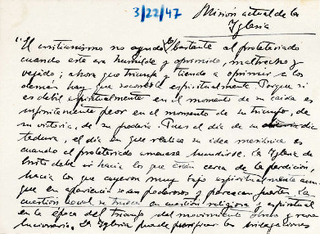 3/22/47
Misión actual de la
Iglesia
"El cristianismo no ayudó bastante al proletariado
cuando este era humilde y oprimido, maltrecho y
vejado; ahora que triunfa y tiende a oprimir a los
demás hay que socorrerle espiritualmente. Porque si
es débil espiritualmente en el momento de su caída es
infinitamente peor en el momento de su triunfo, de
su victoria, de su poderío. Pues el día de su dic
tadura, el día en que realiza su idea mesiánica es
cuando el proletariado amenaza hundirse. La Iglesia de
Cristo debe ir hacia los que están cerca de la perdición,
hacia los que cayeron muy bajo espiritualmente aun
que en apariencia sean poderosos y parezcan fuertes. La
cuestión social se trueca en cuestión religiosa y espiritual
en la época del triunfo del movimiento obrero y revo
lucionario. La Iglesia puede purificar las